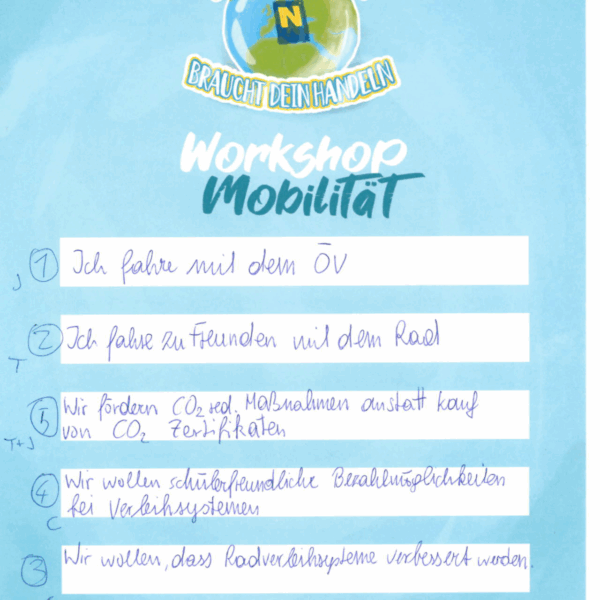 N
BRAUCHT DEIN HANDELN
Workshop
Mobilität
1 Ich fahre mit dem ÖV
J
2 Ich fahre zu Freunden mit dem Rad
T
5 Wir fördern CO2 red. Maßnahmen anstatt kauf
von CO2 Zertifikaten
T+J
4 Wir wollen schülerfreundliche Bezahlmöglichkeiten
bei Verleihsystemen
C
3 Wir wollen, dass Radverleihsysteme verbessert werden.